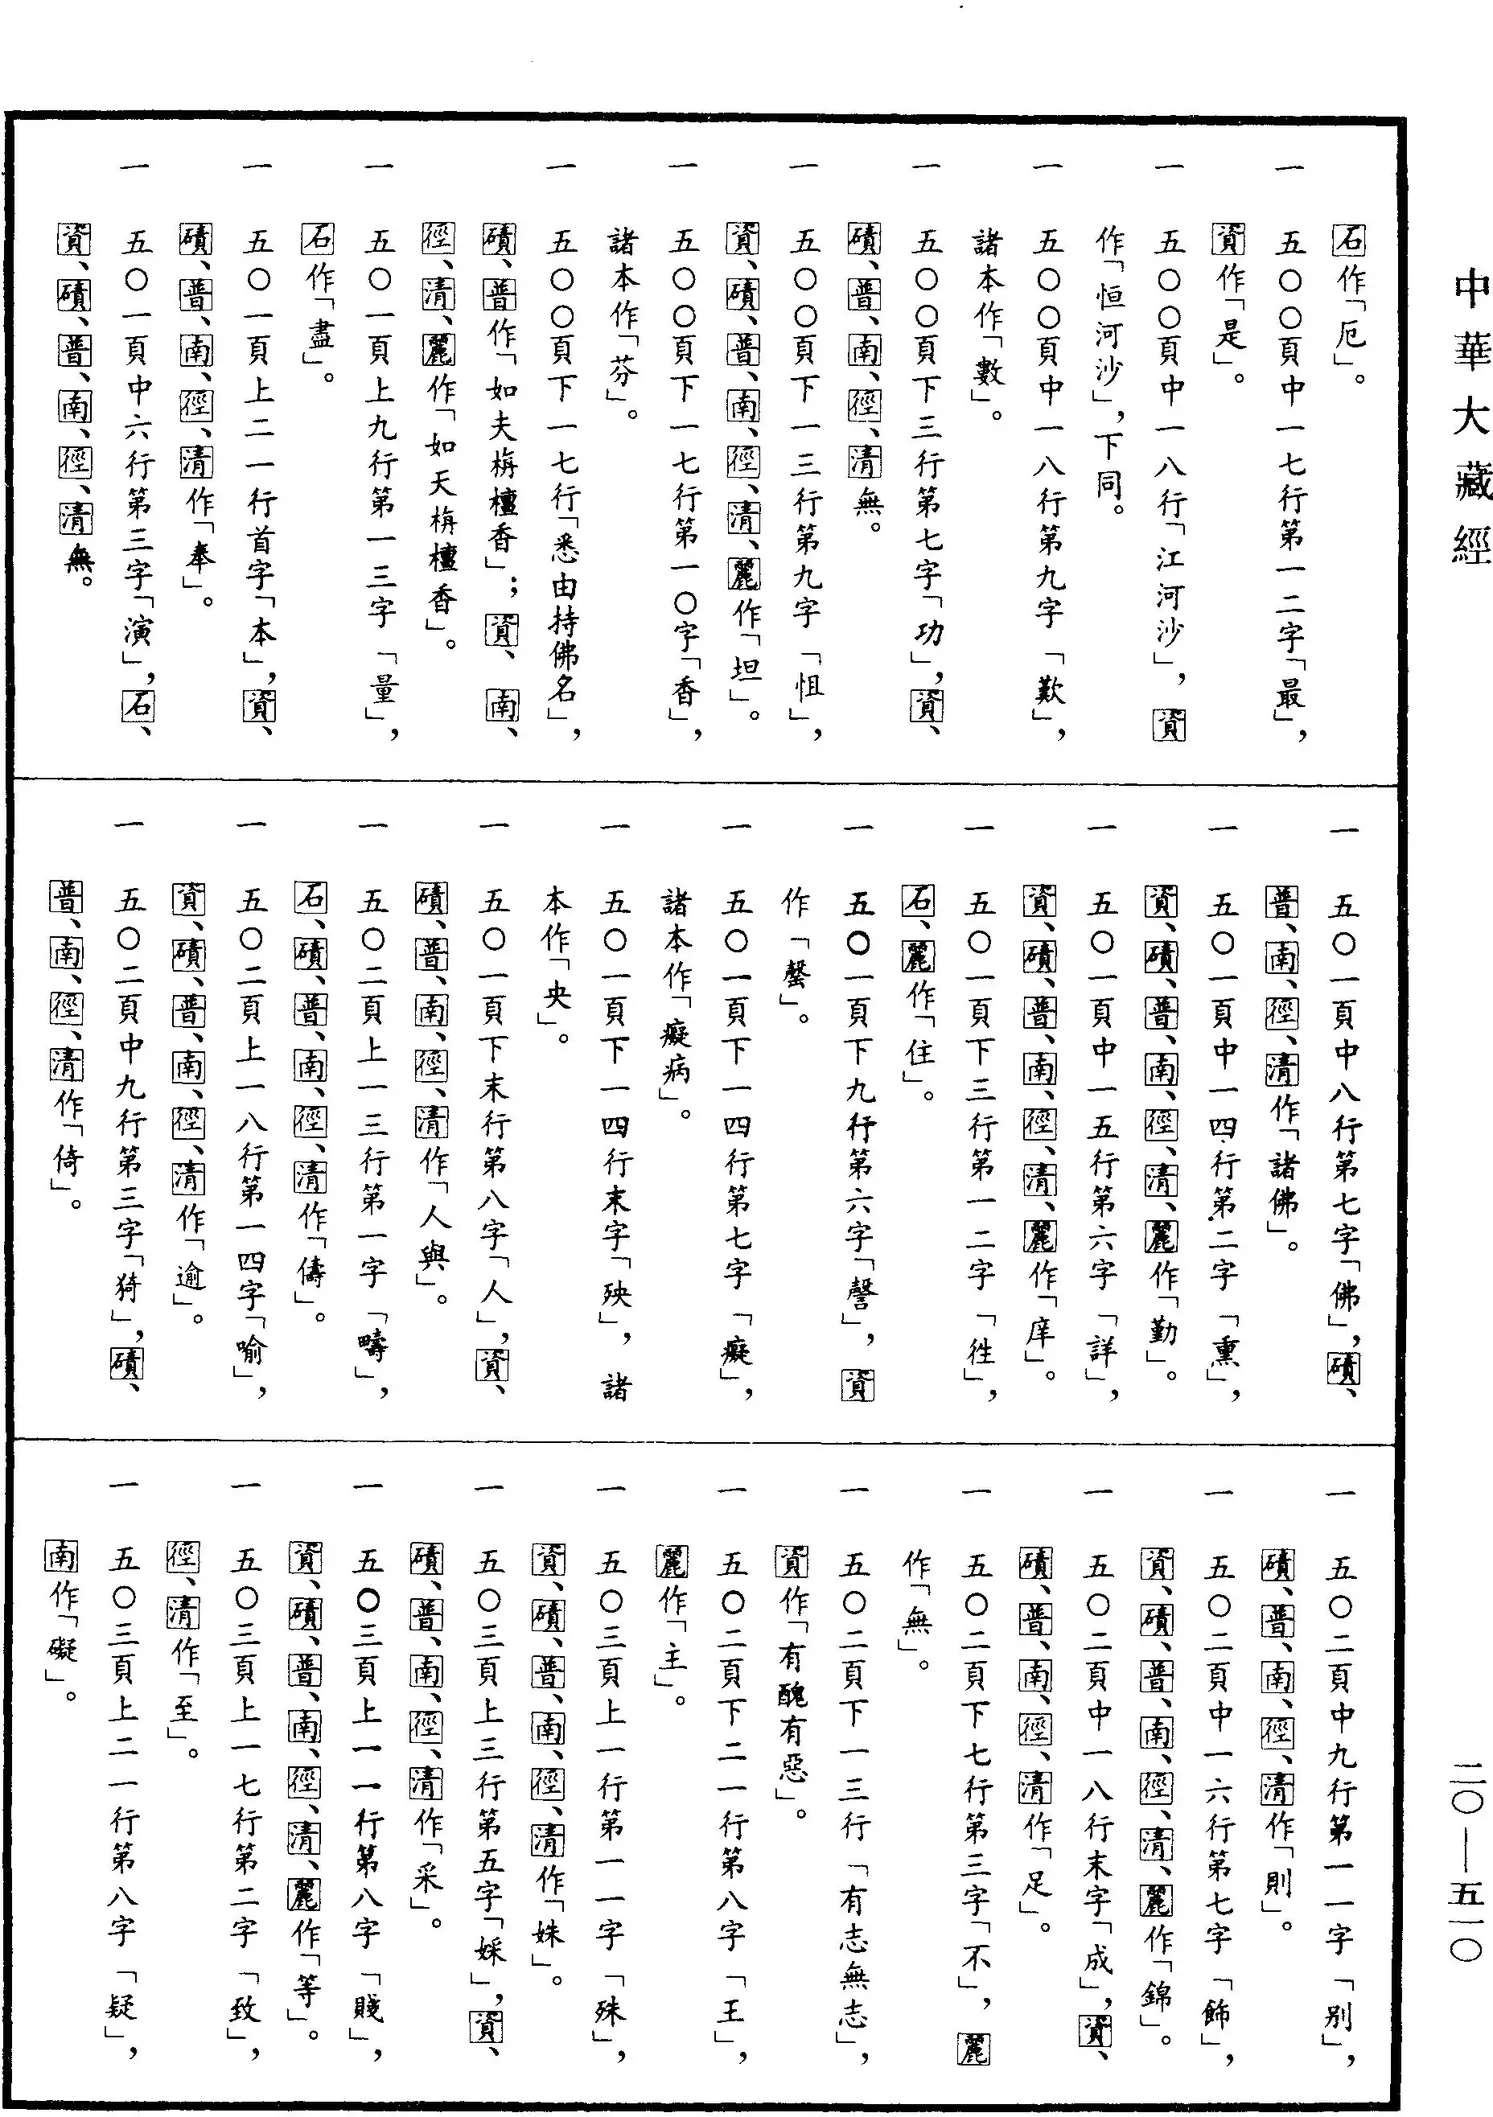 中華大藏經
石作「厄」。
一　五〇〇頁中一七行第一二字「最」，
資作「是」。
一　五〇〇頁中一八行「江河沙」，資
作「恒河沙」，下同。
一　五〇〇頁中一八行第九字「歎」，
諸本作「數」。
一　五〇〇頁下三行第七字「功」，資、
磧、普、南、徑、清無。
一　五〇〇頁下一三行第九字「怚」，
資、磧、普、南、徑、清、麗作「坦」。
一　五〇〇頁下一七行第一〇字「香」，
諸本作「芬」。
一　五〇〇頁下一七行「悉由持佛名」，
磧、普作「如夫栴檀香」；資、南、
徑、清、麗作「如天栴檀香」。
一　五〇一頁上九行第一三字「量」，
石作「盡」。
一　五〇一頁上二一行首字「本」，資、
磧、普、南、徑、清作「奉」。
一　五〇一頁中六行第三字「演」，石、
資、磧、普、南、徑、清無。
一　五〇一頁中八行第七字「佛」，磧、
普、南、徑、清作「諸佛」。
一　五〇一頁中一四行第二字「熏」，
資、磧、普、南、徑、清、麗作「勤」。
一　五〇一頁中一五行第六字「詳」，
資、磧、普、南、徑、清、麗作「庠」。
一　五〇一頁下三行第一二字「徃」，
石、麗作「住」。
一　五〇一頁下九行第六字「謦」，資
作「罄」。
一　五〇一頁下一四行第七字「癡」，
諸本作「癡病」。
一　五〇一頁下一四行末字「殃」，諸
本作「央」。
一　五〇一頁下末行第八字「人」，資、
磧、普、南、徑、清作「人與」。
一　五〇二頁上一三行第一字「疇」，
石、磧、普、南、徑、清作「儔」。
一　五〇二頁上一八行第一四字「喻」，
資、磧、普、南、徑、清作「逾」。
一　五〇二頁中九行第三字「猗」，磧、
普、南、徑、清作「倚」。
一　五〇二頁中九行第一一字「別」，
磧、普、南、徑、清作「則」。
一　五〇二頁中一六行第七字「飾」，
資、磧、普、南、徑、清、麗作「錦」。
一　五〇二頁中一八行末字「成」，資、
磧、普、南、徑、清作「足」。
一　五〇二頁下七行第三字「不」，麗
作「無」。
一　五〇二頁下一三行「有志無志」，
資作「有醜有惡」。
一　五〇二頁下二一行第八字「王」，
麗作「主」。
一　五〇三頁上一行第一一字「殊」，
資、磧、普、南、徑、清作「姝」。
一　五〇三頁上三行第五字「婇」，資、
磧、普、南、徑、清作「采」。
一　五〇三頁上一一行第八字「賤」，
資、磧、普、南、徑、清、麗作「等」。
一　五〇三頁上一七行第二字「致」，
徑、清作「至」。
一　五〇三頁上二一行第八字「疑」，
南作「礙」。
二〇—五一〇